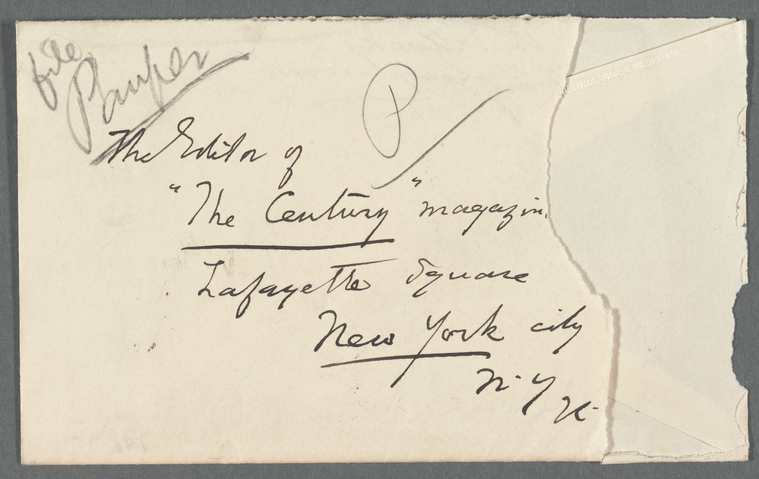 file
P
The Editor of
"The Century" magazin
Lafayette Square
New York city
N. Y